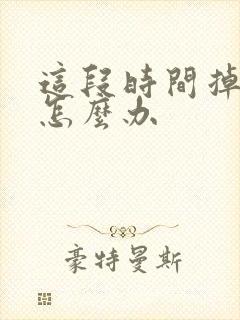 這段時間掉
怎麼办
豪特曼斯